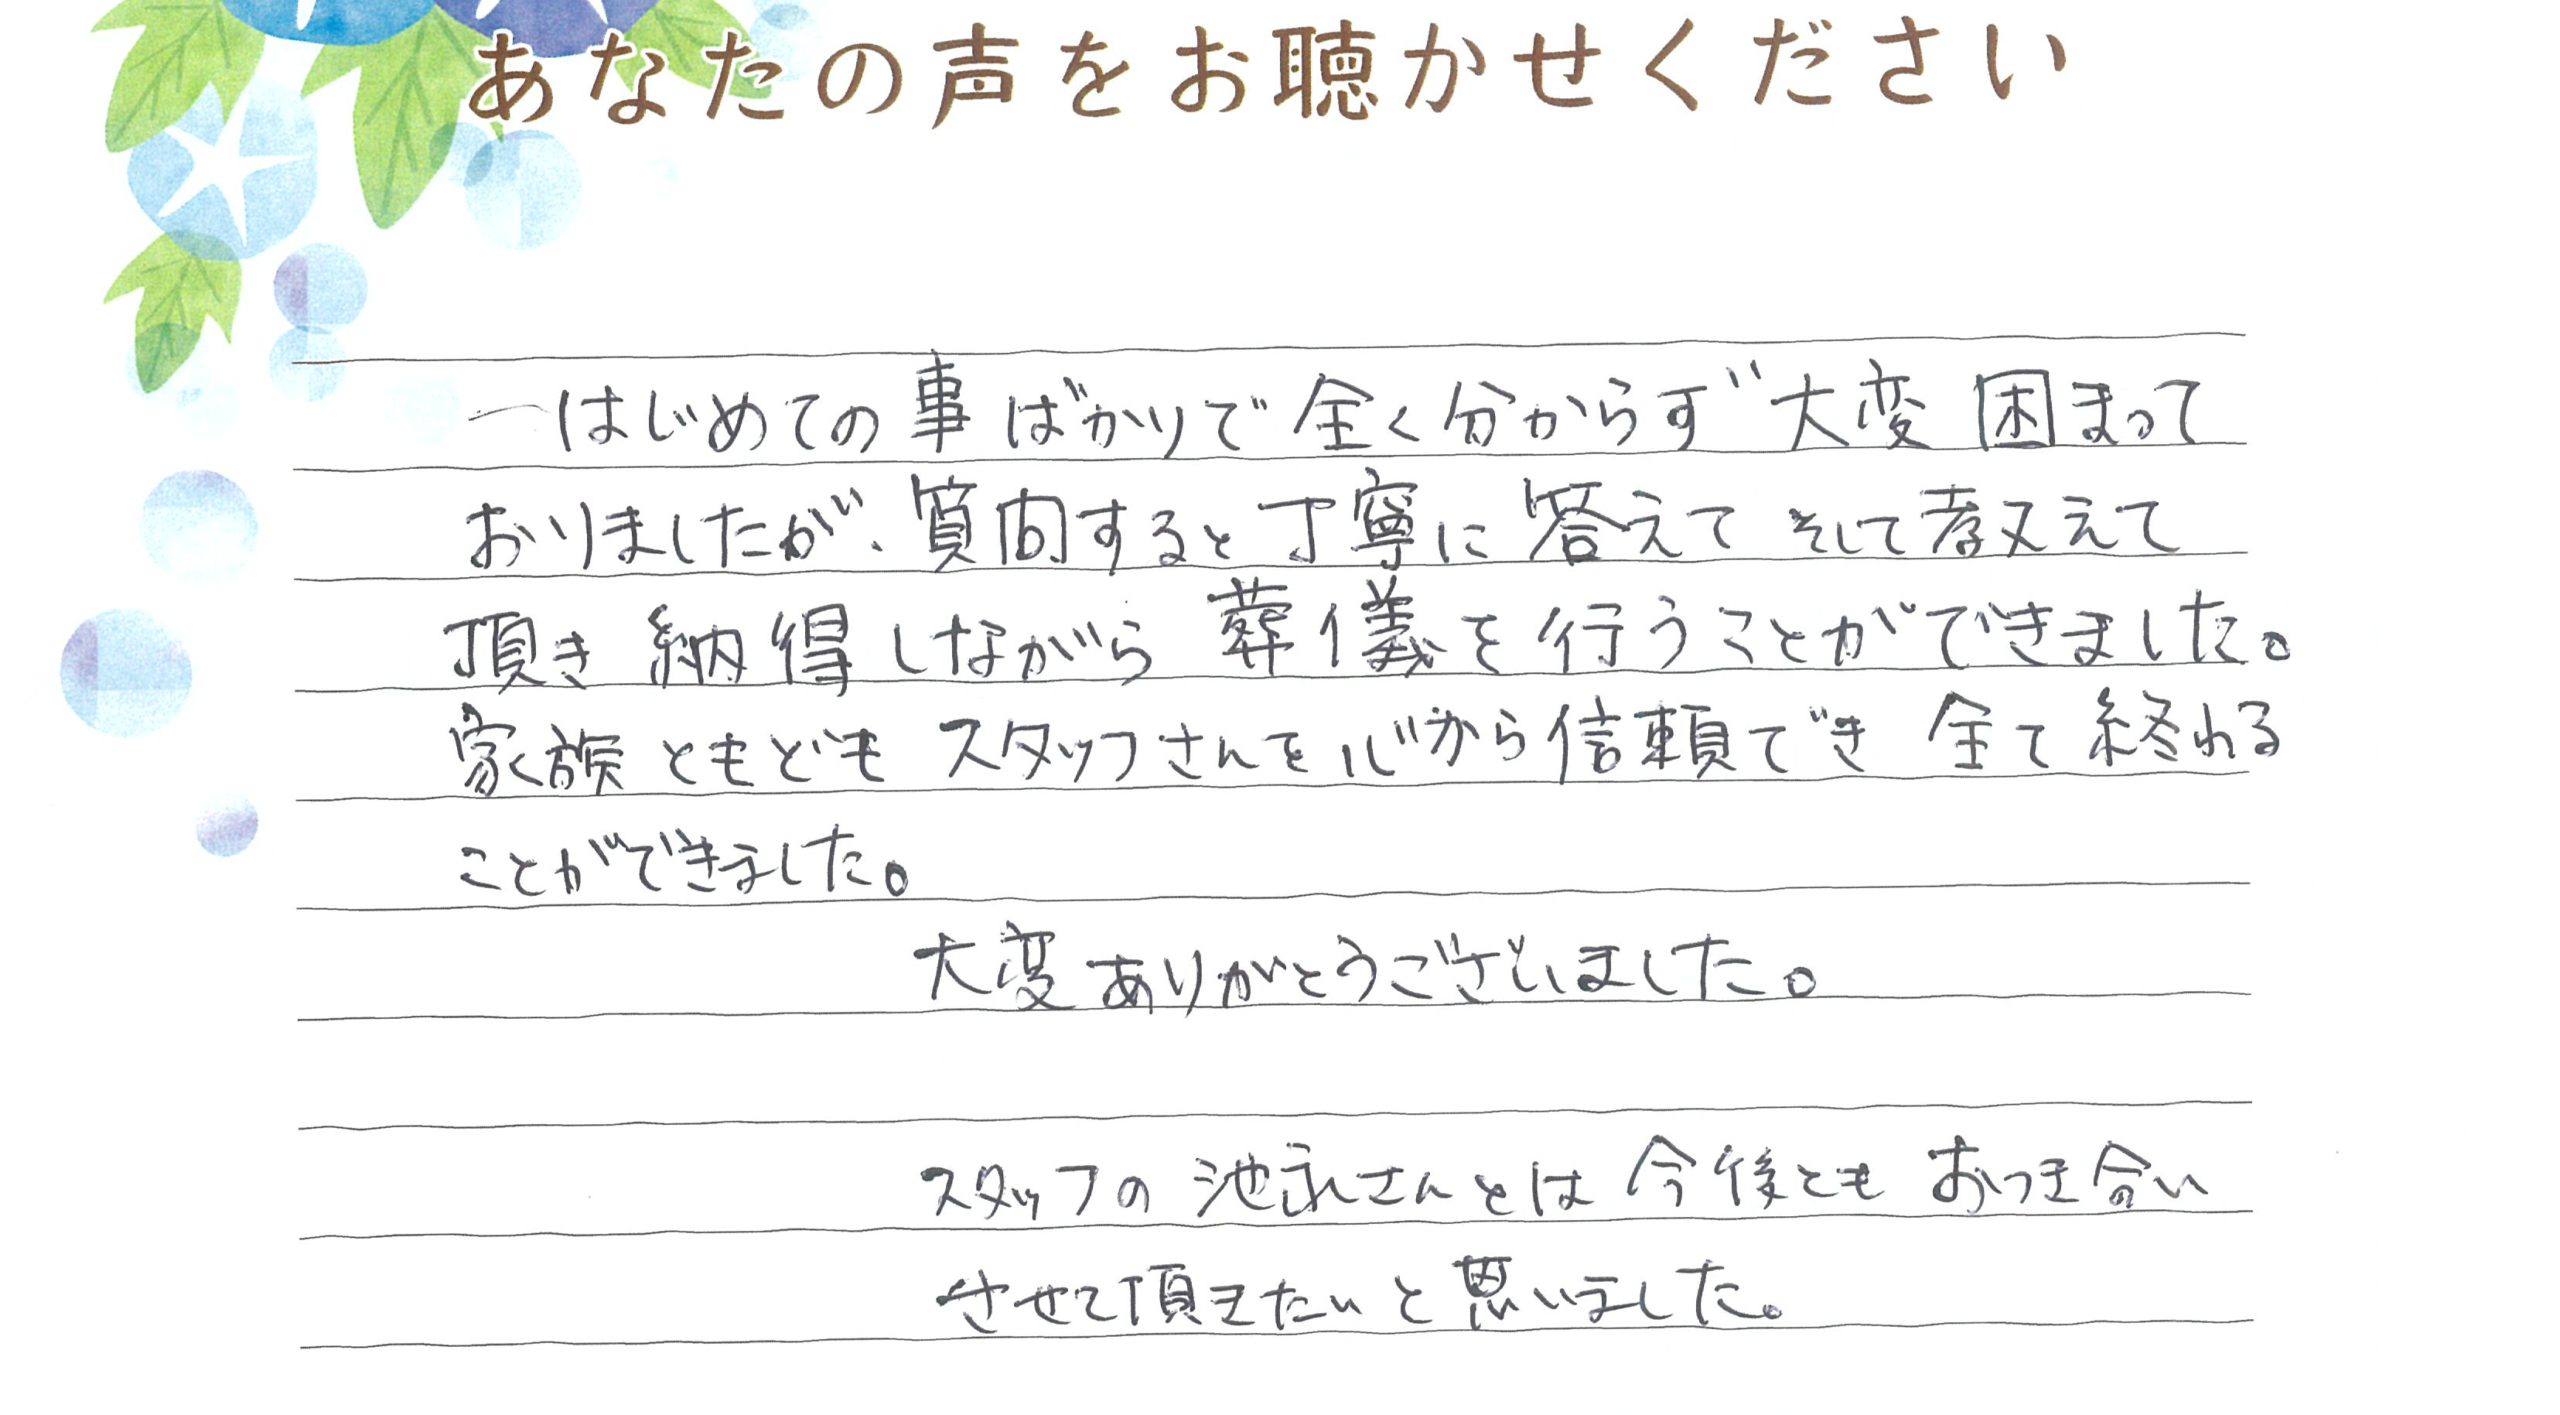 あなたの声をお聴かせください
はじめての事ばかりで全く分からず大変困まって
おりましたが、質問すると丁寧に答えてそして教えて
頂き納得しながら葬儀を行うことができました。
家族ともどもスタッフさんを心から信頼でき全て終れる
ことができました。
大変ありがとうございました。
スタッフの池永さんとは今後ともおつき合い
させて頂きたいと思いました。